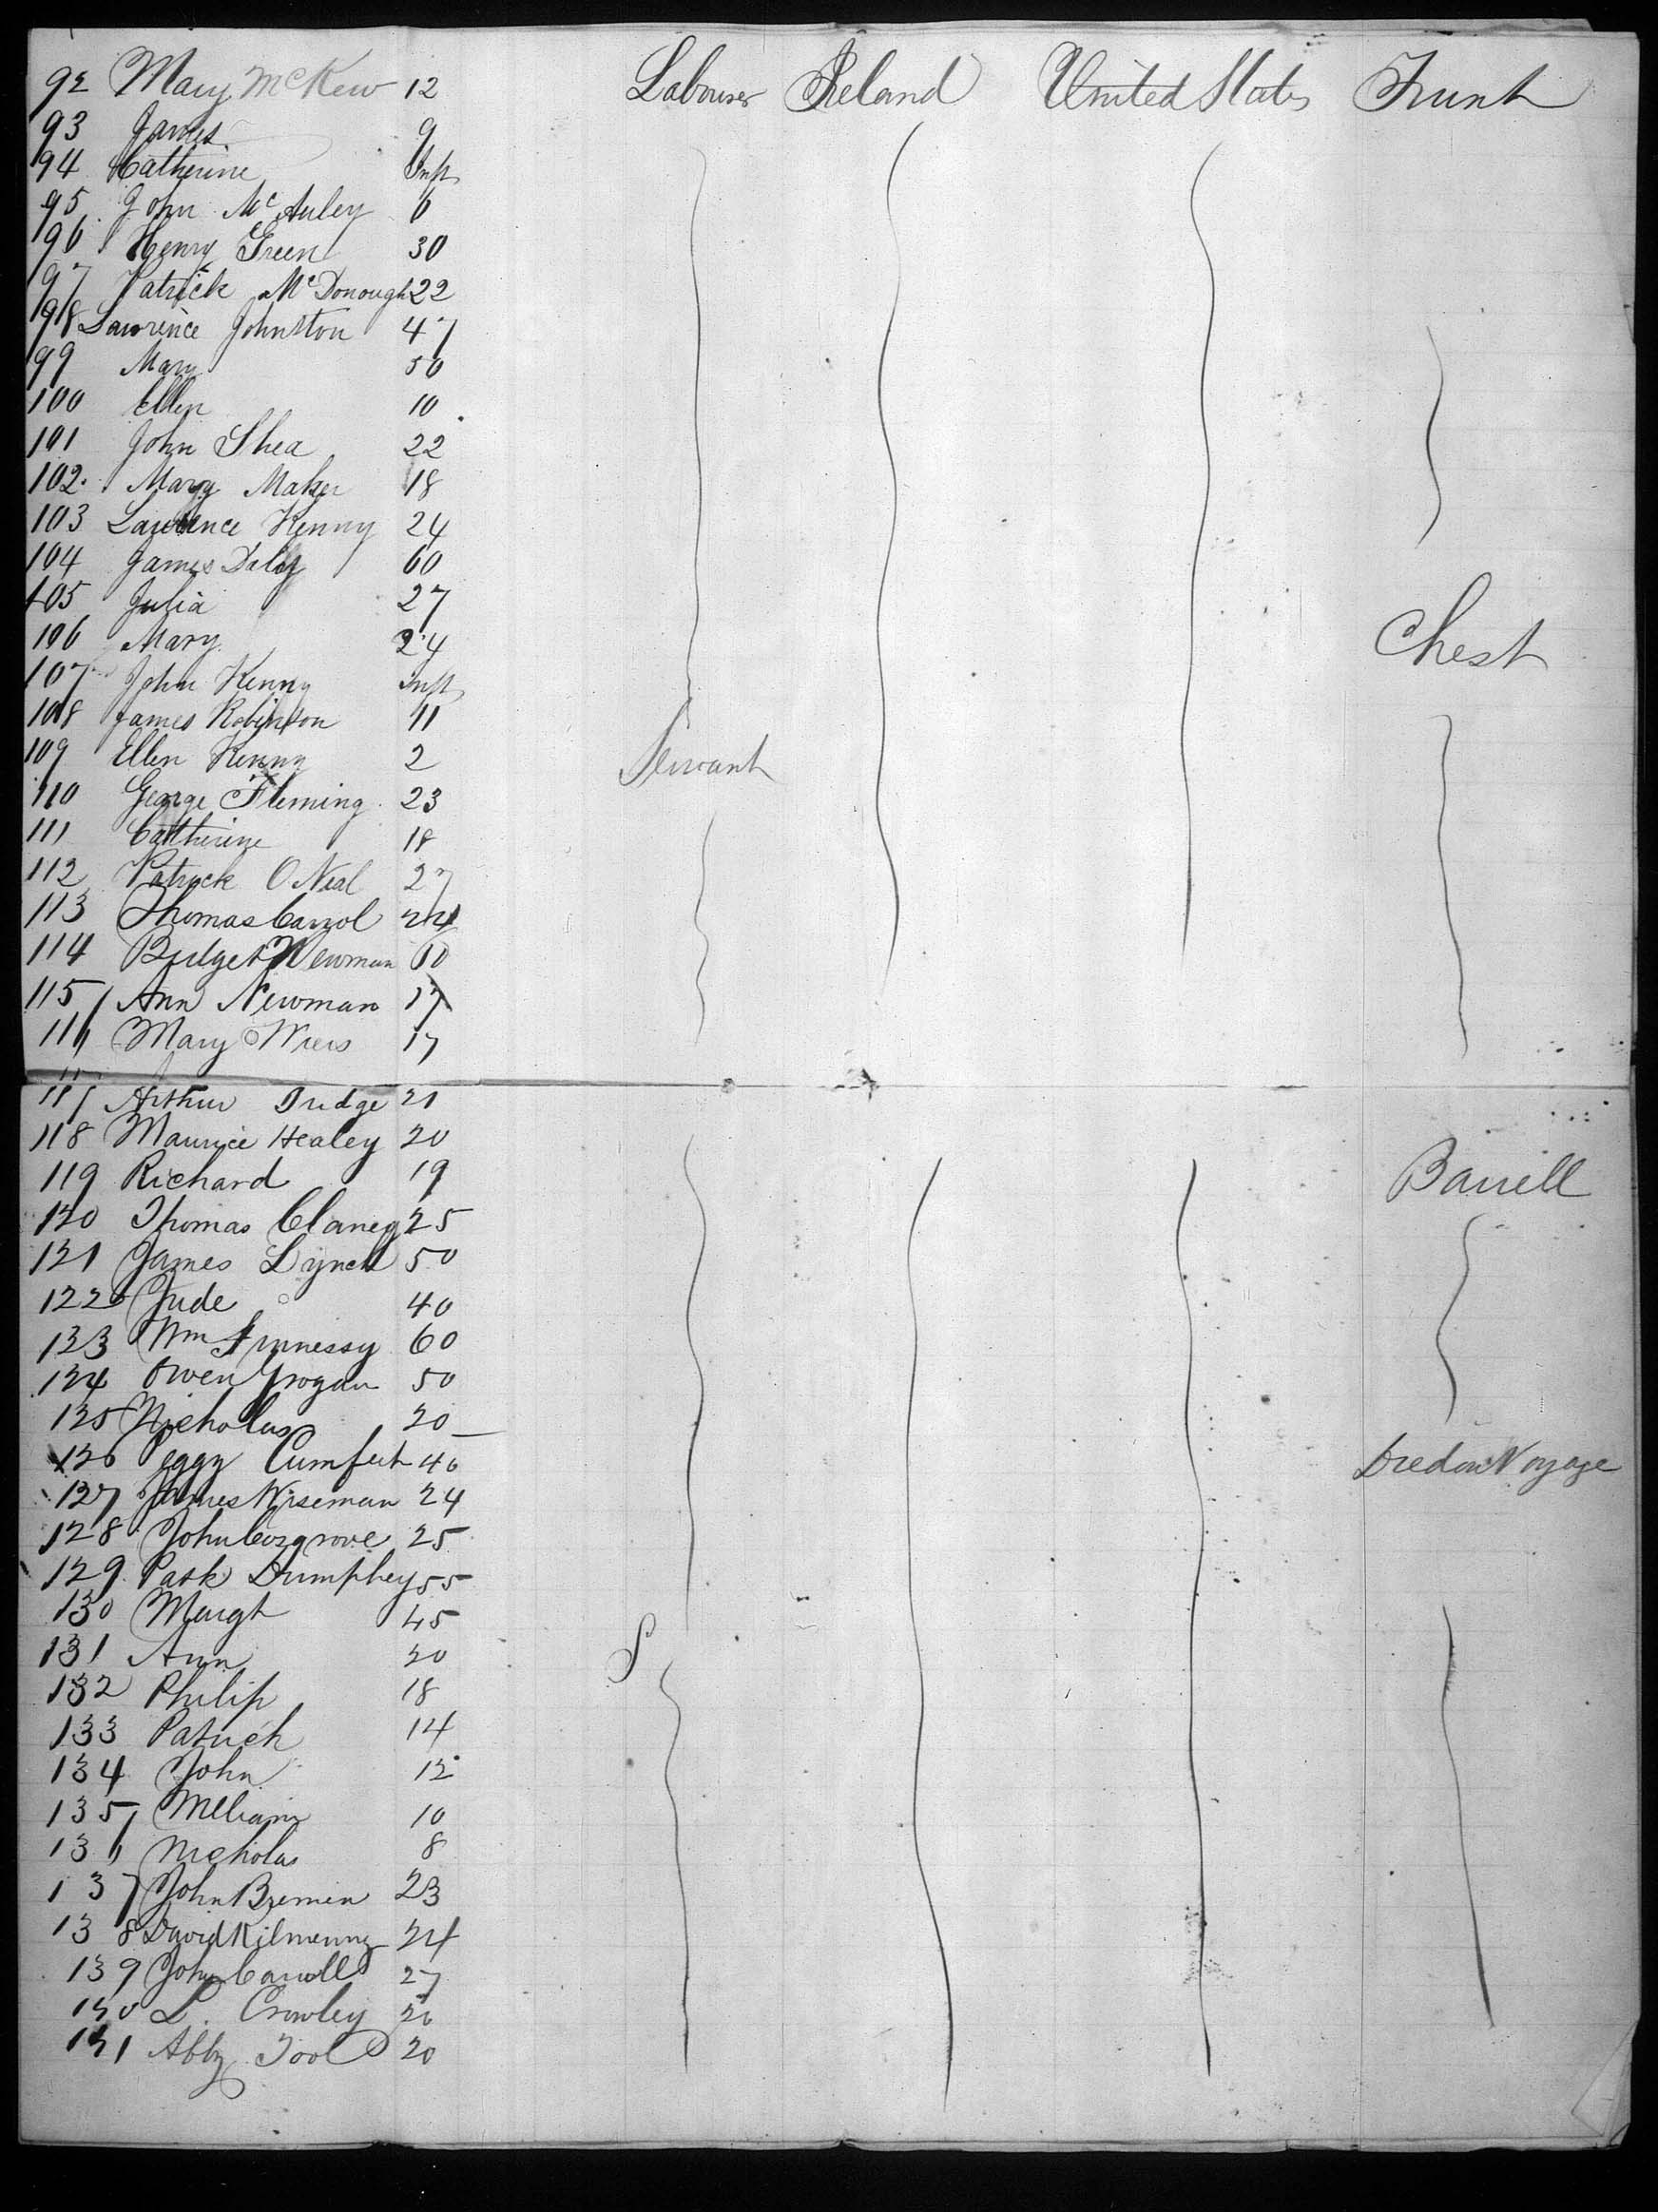 92 Mary McKew 12 Labourer Ireland United States Trunk
93 James 9
94 Catherine Inft
95 John McAuley 6
96 Henry Green 30
97 Patrick McDonough 22
98 Lawrence Johnston 47
99 Mary 50
100 Ellen 10
101 John Shea 22
102 Mary Maker 18
103 Lawrence Kenny 24
104 James Daly 60
105 Julia 27
106 Mary 24 Chest
107 John Kenny Inft
108 James Robinson 11
109 Ellen Kenny 2 Servant
110 George Fleming 23
111 Catherine 18
112 Patrick O Neal 27
113 Thomas Carrol 24
114 Bridget Newman 10
115 Ann Newman 17
116 Mary 17
117 Arthur 21
118 Maurice Healey 20
119 Richard 19 Barrell
120 Thomas Clancy 25
121 James Lynch 50
122 Jude 40
123 Wm 60
124 Owen Grogan 50
125 Nicholas 20
126 Peggy 40 Died on Voyage
127 James Wiseman 24
128 John Cosgrove 25
129 Patk Dumphey 55
130 Margt 45
131 Ann 20 S
132 Philip 18
133 Patrick 14
134 John 12
135 William 10
136 Nicholas 8
137 John Bremen 23
138 David 24
139 John Carroll 27
130 L. Crowley 26
131 Abby Tool 20